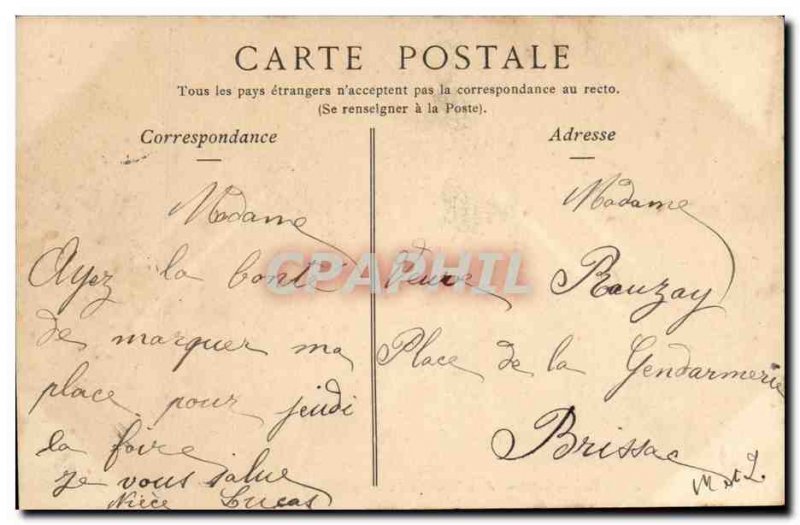 CARTE POSTALE
Tous les pays étrangers n'acceptent pas la correspondance au recto.
(Se renseigner à la Poste).
Correspondance
Madame
Ayez la bonté
de marquer ma
place pour jeudi
la foire
je vous salue
Nièce Lucas
Adresse
Madame
Veuve Rouzay
Place de la Gendarmerie
Brissac
M et L
CPAPHIL